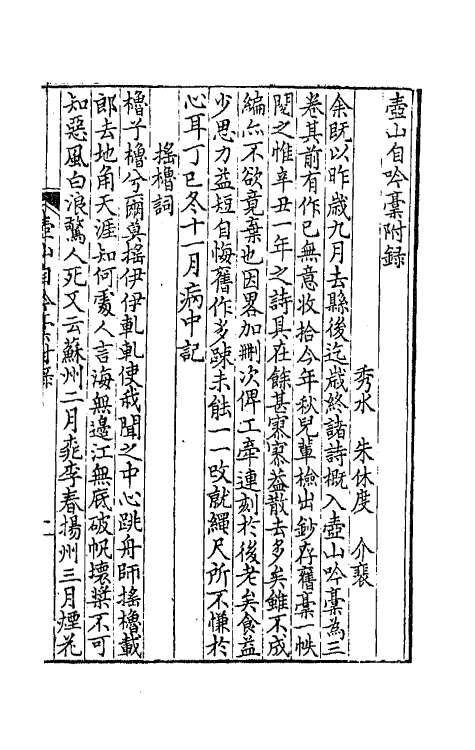 壺山自吟藁附録
秀水 朱休度 介裴
余旣以昨歲九月去縣後迄歲終諸詩概入壺山吟藁為三
卷其前有作已無意收拾今年秋兒輩檢出鈔存舊藁一帙
閱之惟辛丑一年之詩具在餘甚寥寥葢散去多矣雖不成
編亦不欲竟棄也因畧加刪次俾工牽連刻於後老矣食益
少思力益短自悔舊作多疎未能一一改就繩尺所不慊於
心耳丁巳冬十一月病中記
搖櫓詞
櫓子櫓兮爾莫搖伊伊軋軋使我聞之中心跳舟師搖櫓載
郎去地角天涯知何處人言海無邊江無底破帆壞槳不可
知惡風白浪驚人死又云蘇州二月乘李春揚州三月煙花
壺山自吟藁附錄